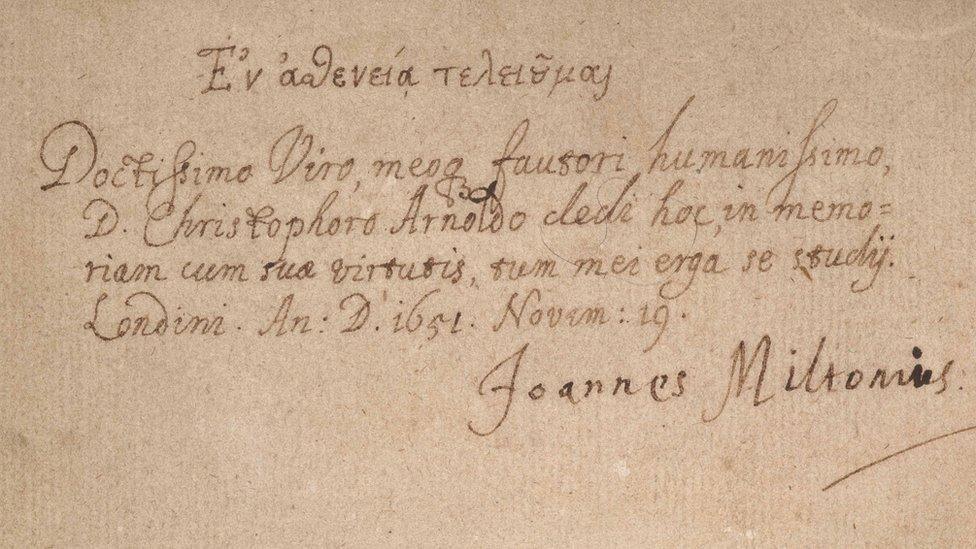 Ἐν ἀσθενείᾳ τελειῦμαι
Doctissimo Viro, meoq; fautori humanissimo,
D. Christophoro Arnoldo dedi hoc, in memo=
riam cum suæ virtutis, tum mei erga se studij.
Londini. An: D. 1651. Novem: 19.
Joannes Miltonius.